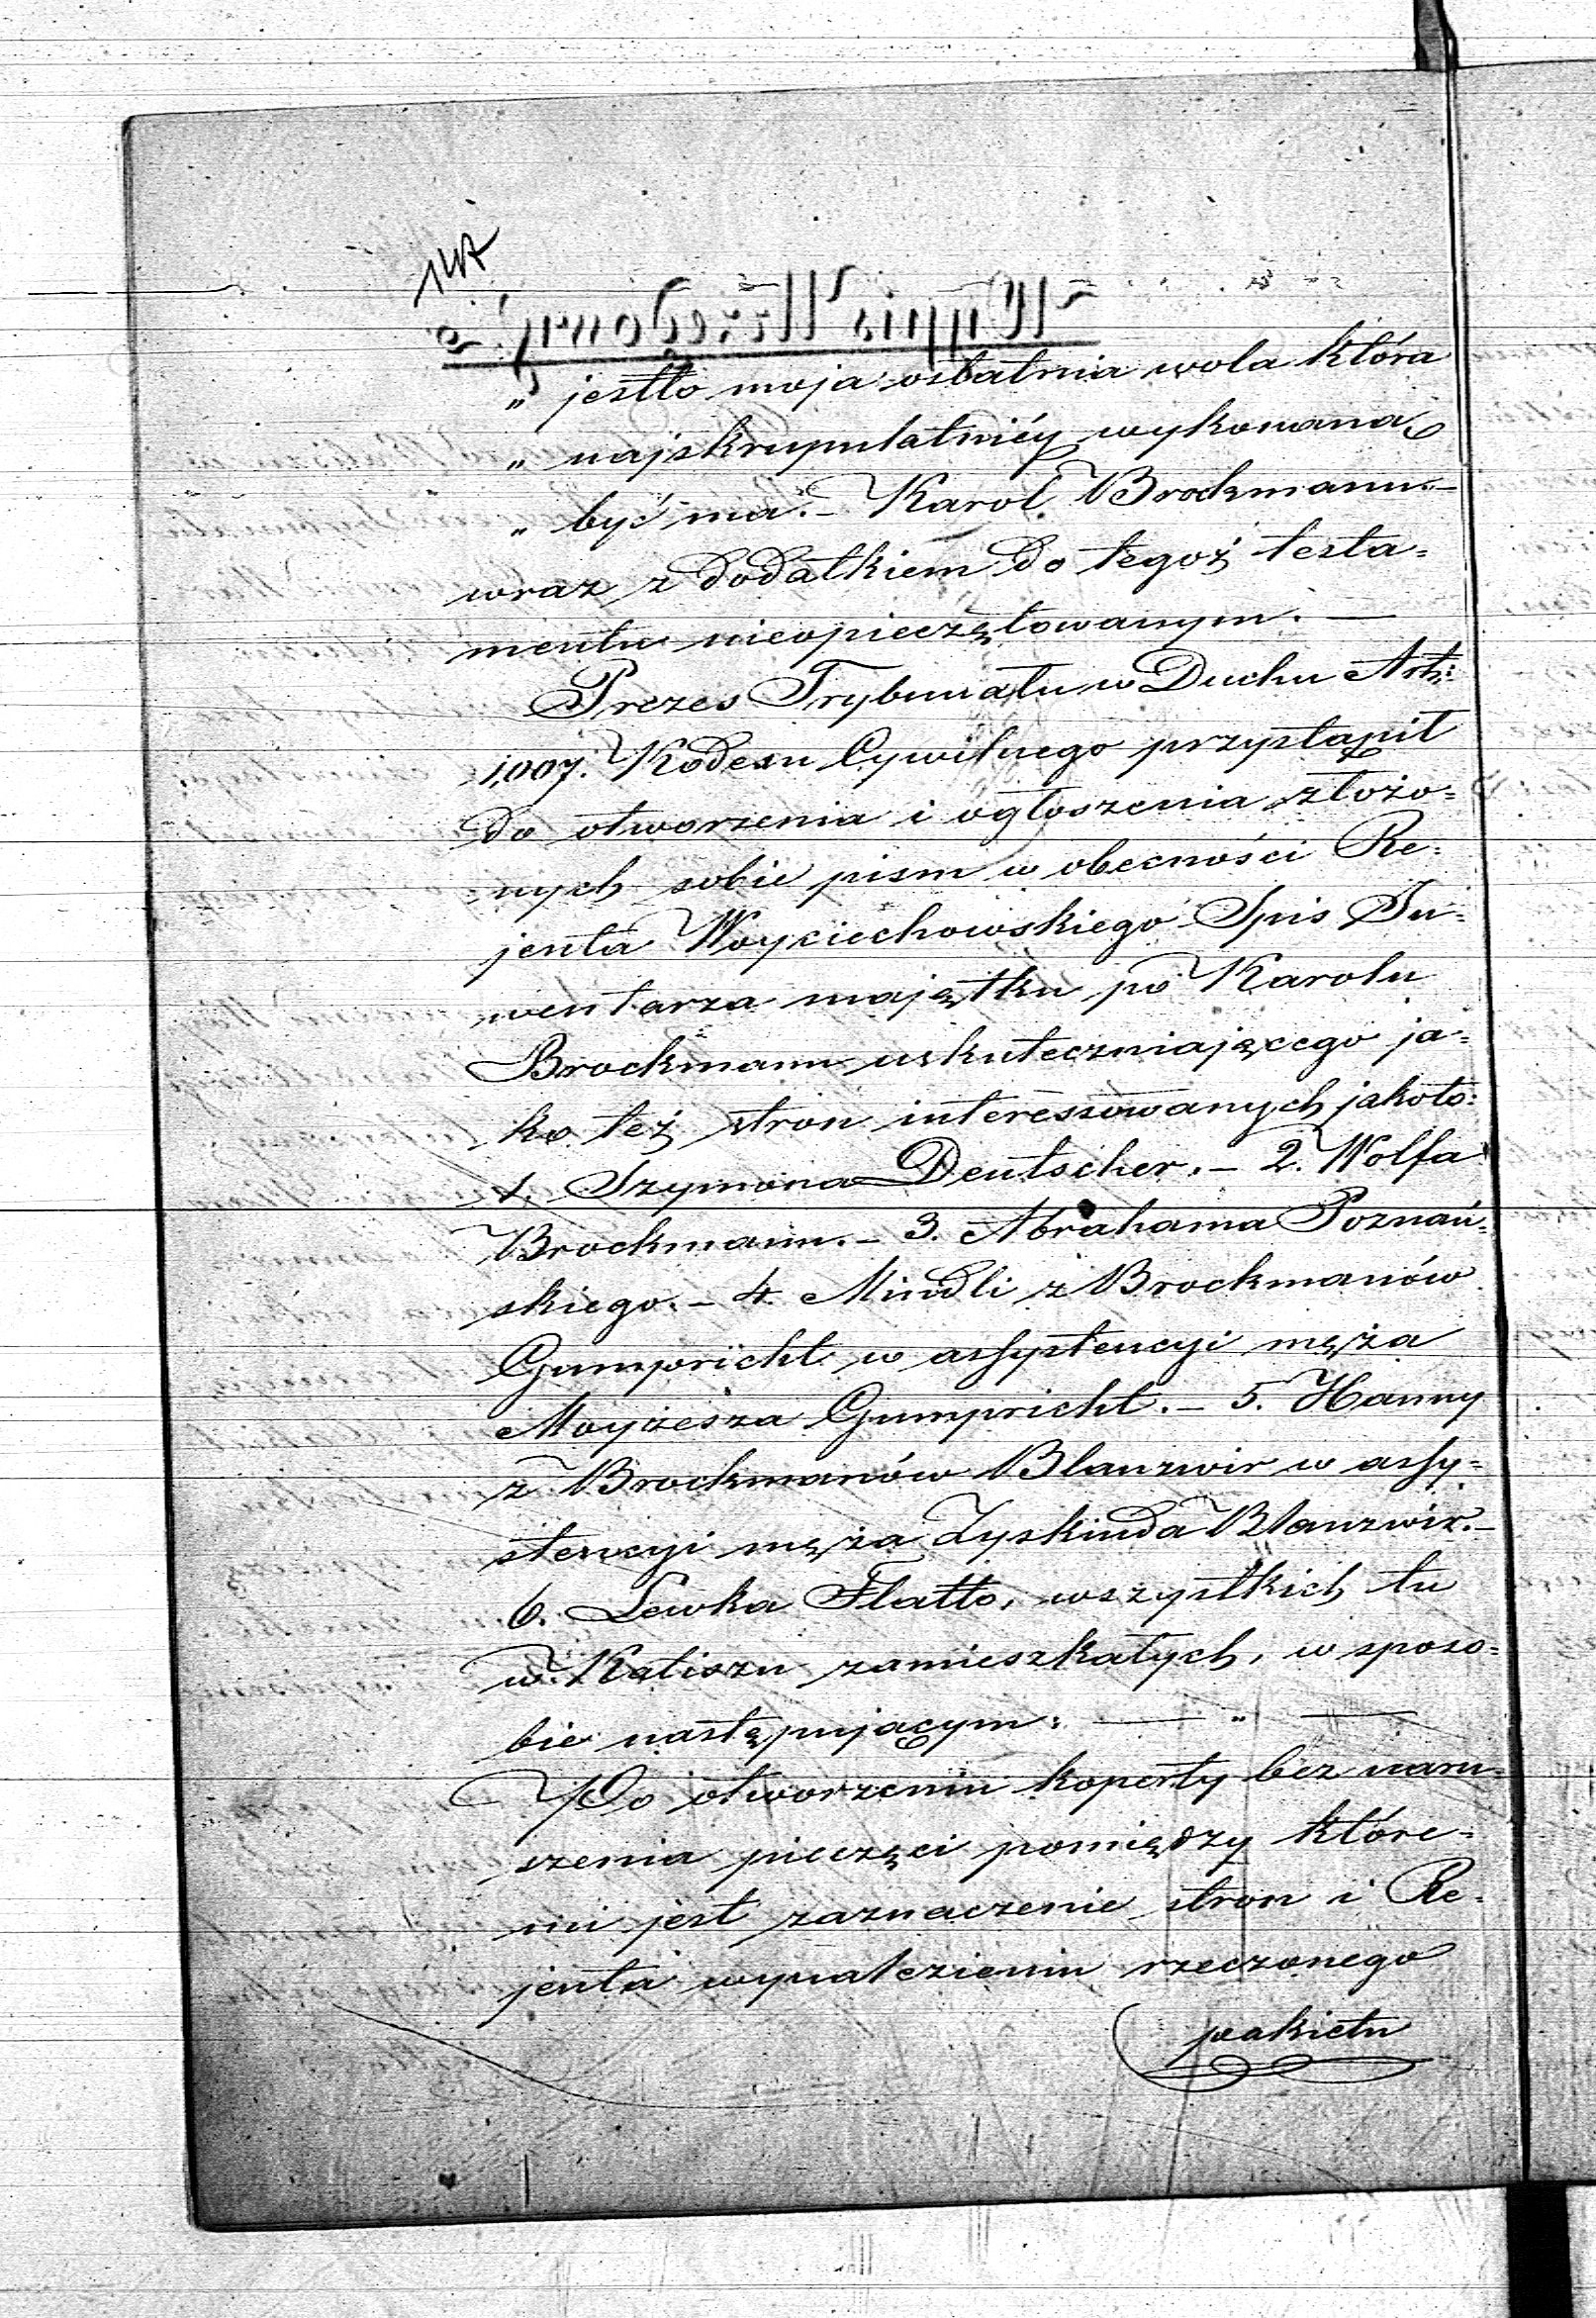 147
„ jestto moja ostatnia wola która
„ najskrupulatniéy wykonaną
„ być ma." – Karol Brockmann. –
wraz z dodatkiem do tegoż testa=
mentu nieopieczętowanym. —
Prezes Trybunału w Duchu Art:
1,007. Kodexu Cywilnego przystąpił
do otworzenia i ogłoszenia złożo=
nych sobie pism w obecności Re=
jenta Woyciechowskiego Spis In=
wentarza majątku po Karolu
Brockmann uskuteczniającego ja=
ko też stron interessowanych jakoto:
1. Szymona Deutscher. – 2. Wolfa
Brockmann. – 3. Abrahama Poznań=
skiego. – 4. Mindli z Brockmanów
Gumpricht w assystencyi męża
Moyżesza Gumpricht. – 5. Hanny
z Brockmanów Blanzwir w assy=
stencyi męża Zyskinda Blanzwir. –
6. Lewka Flatto, wszystkich tu
w Kaliszu zamieszkałych, w sposo=
bie następującym: — „ —
Po otworzeniu koperty bez naru=
szenia pieczęci pomiędzy które=
mi jest zaznaczenie stron i Re=
jenta wynalezieniu rzeczonego
pakietu